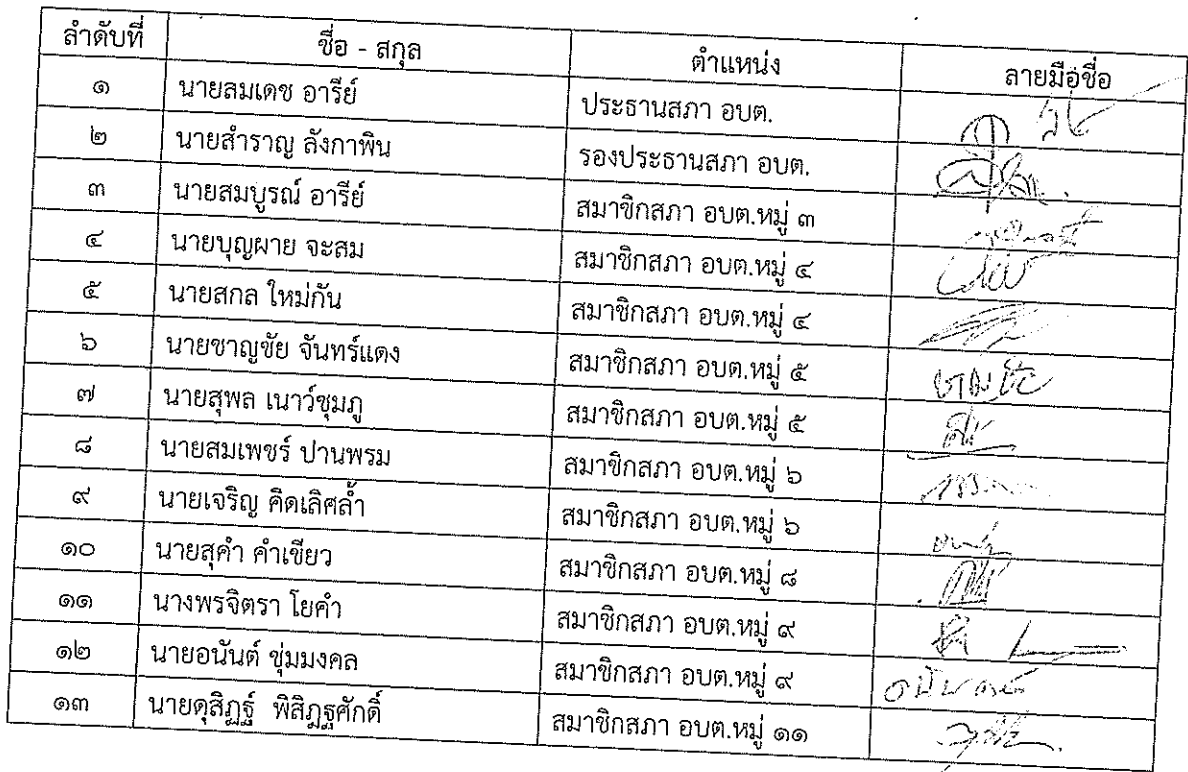 ลำดับที่ ชื่อ - สกุล ตำแหน่ง ลายมือชื่อ
๑ นายสมเดช อารีย์ ประธานสภา อบต.
๒ นายสำราญ ลังกาพิน รองประธานสภา อบต.
๓ นายสมบูรณ์ อารีย์ สมาชิกสภา อบต.หมู่ ๓
๔ นายบุญผาย จะสม สมาชิกสภา อบต.หมู่ ๔
๕ นายสกล ใหม่กัน สมาชิกสภา อบต.หมู่ ๔
๖ นายชาญชัย จันทร์แดง สมาชิกสภา อบต.หมู่ ๕ ชาญชัย
๗ นายสุพล เนาว์ชุมภู สมาชิกสภา อบต.หมู่ ๕
๘ นายสมเพชร์ ปานพรม สมาชิกสภา อบต.หมู่ ๖
๙ นายเจริญ คิดเลิศล้ำ สมาชิกสภา อบต.หมู่ ๖
๑๐ นายสุคำ คำเขียว สมาชิกสภา อบต.หมู่ ๘
๑๑ นางพรจิตรา โยคำ สมาชิกสภา อบต.หมู่ ๙
๑๒ นายอนันต์ ชุ่มมงคล สมาชิกสภา อบต.หมู่ ๙
๑๓ นายดุสิฏฐ์ พิสิฏฐศักดิ์ สมาชิกสภา อบต.หมู่ ๑๑